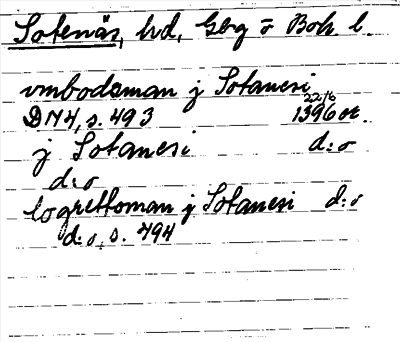 Sotenäs, hd, Gbg o Boh. l.
vmbodsman j Sotanesi
22/6
DN4, s. 493 1396 or.
j Sotanesi d:o
d:o
logrettoman j Sotanesi d:o
d:o, s. 494